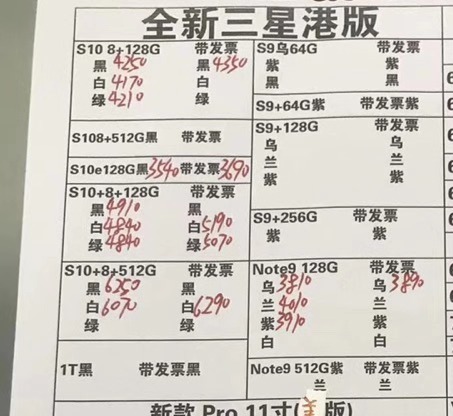 全新三星港版
S10 8+128G 带发票
黑 4250 黑 4350
白 4170 白
绿 4210 绿
S108+512G黑 带发票
S10e128G黑 3540 带发票 3690
S10+8+128G 带发票
黑 4910 黑
白 4840 白 5190
绿 4840 绿 5070
S10+8+512G 带发票
黑 6250 黑
白 6070 白 6290
绿 绿
1T黑 带发票黑
S9乌64G 带发票
紫 紫
黑 黑
S9+64G紫 带发票紫
S9+128G 带发票
乌 乌
兰 兰
紫 紫
S9+256G 带发票
紫 紫
Note9 128G 带发票
乌 3810 乌 3890
兰 4010 兰
紫 3910 紫
白 白
Note9 512G紫 带发票紫
兰 兰
新款 Pro 11寸(美版)